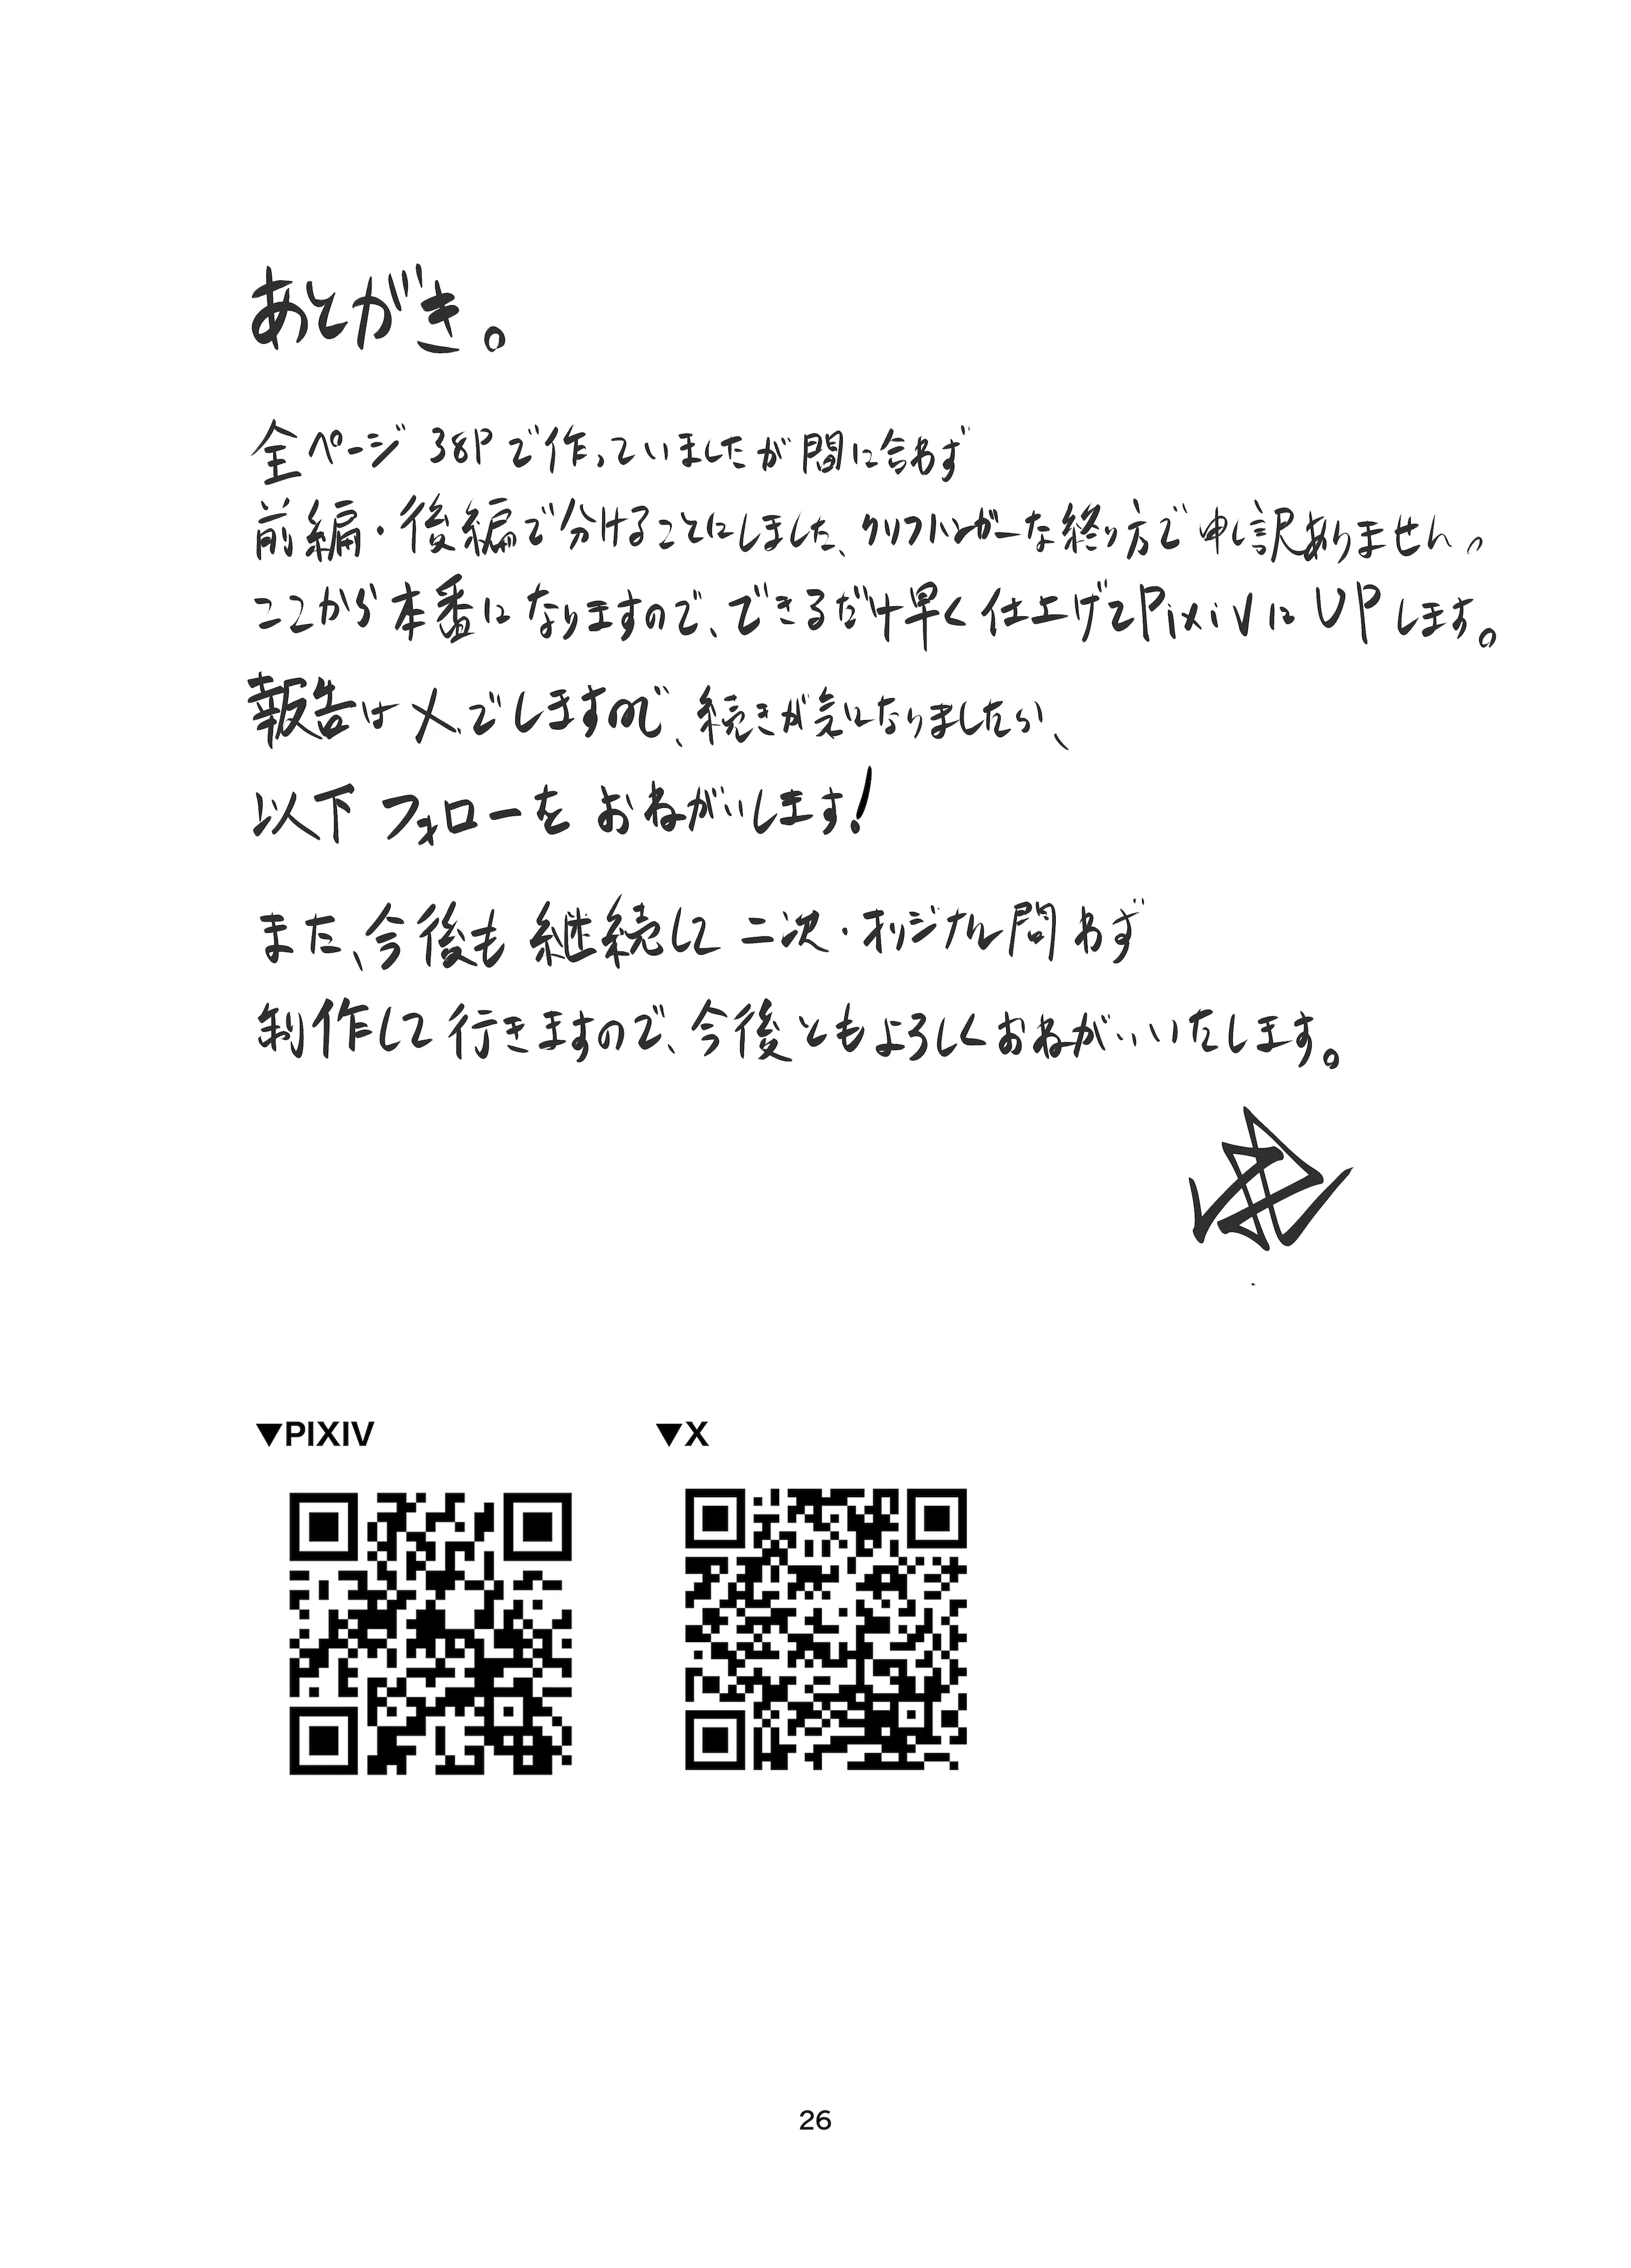 あとがき。
全ページ 38Pで作っていましたが間に合わず
前編・後編で分けることにしました、クリフハンガーな終り方で申し訳ありません。
ここから本番になりますので、できるだけ早く仕上げてPixivにUPします。
報告はX.でしますので、続きが気になりましたら、
以下フォローをおねがいします!
また、今後も継続して二次・オリジナル問わず
制作して行きますので、今後ともよろしくおねがいいたします。
▼PIXIV
▼X
26